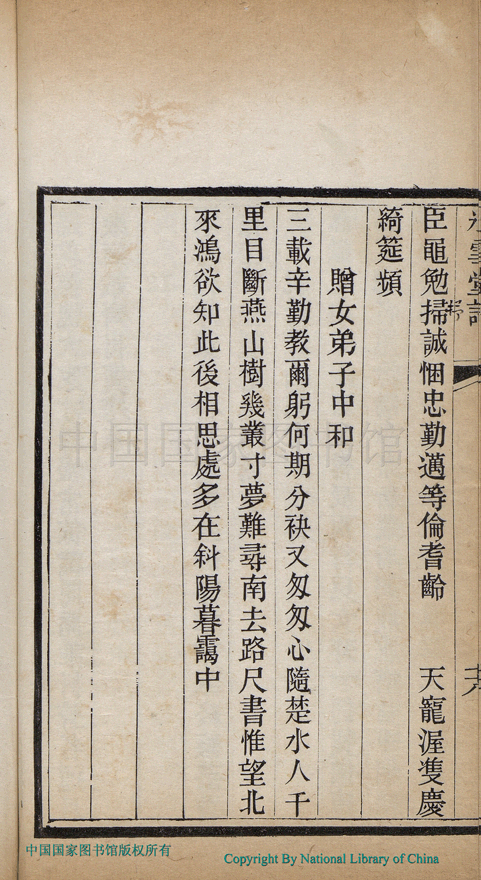 臣黽勉掃誠悃忠勤邁等倫耆齡 天寵渥雙慶
綺筵頻
贈女弟子中和
三載辛勤教爾躬何期分袂又匆匆心隨楚水人千
里目斷燕山樹幾叢寸夢難尋南去路尺書惟望北
來鴻欲知此後相思處多在斜陽暮靄中
中国国家图书馆
中国国家图书馆版权所有
Copyright By National Library of China